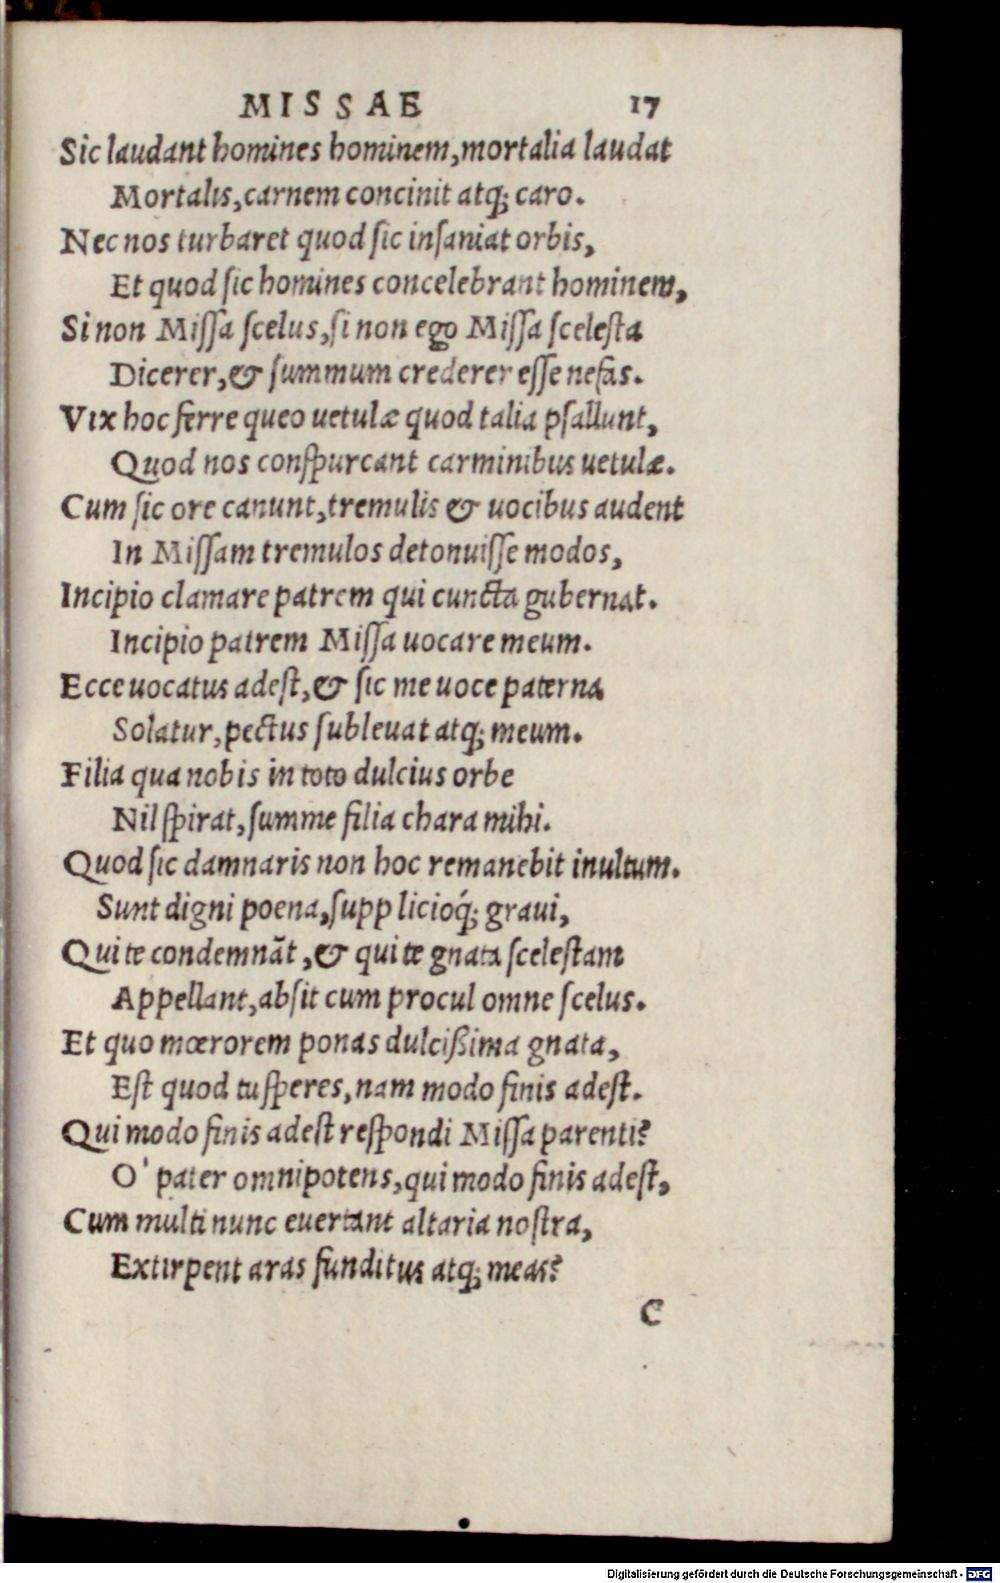 MISSAE 17
Sic laudant homines hominem, mortalia laudat
Mortalis, carnem concinit atq; caro.
Nec nos turbaret quod sic inſaniat orbis,
Et quod ſic homines concelebrant hominem,
Si non Miſſa ſcelus, ſi non ego Miſſa ſceleſta
Dicerer, & ſummum crederer eſſe nefas.
Vix hoc ferre queo uetulæ quod talia pſallunt,
Quod nos conſpurcant carminibus uetulæ.
Cum ſic ore canunt, tremulis & uocibus audent
In Miſſam tremulos detonuiſſe modos,
Incipio clamare patrem qui cuncta gubernat.
Incipio patrem Miſſa uocare meum.
Ecce uocatus adeſt, & ſic me uoce paterna
Solatur, pectus ſubleuat atq; meum.
Filia qua nobis in toto dulcius orbe
Nil ſpirat, ſumme filia chara mihi.
Quod ſic damnaris non hoc remanebit inultum.
Sunt digni poena, ſupplicioq́; graui,
Qui te condemnãt, & qui te gnata ſceleſtam
Appellant, abſit cum procul omne ſcelus.
Et quo mœrorem ponas dulcißima gnata,
Eſt quod tu ſperes, nam modo finis adeſt.
Qui modo finis adeſt reſpondi Miſſa parenti?
O' pater omnipotens, qui modo finis adeſt,
Cum multi nunc euertant altaria noſtra,
Extirpent aras funditus atq; meas?
C
Digitalisierung gefördert durch die Deutsche Forschungsgemeinschaft - DFG